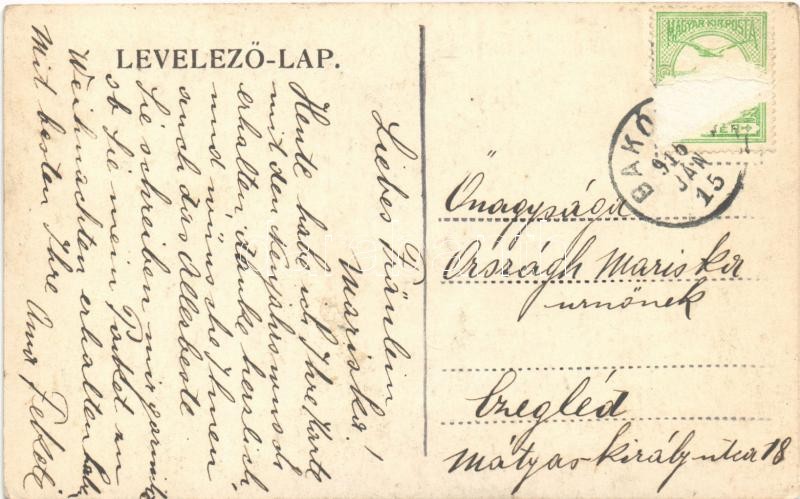 LEVELEZŐ-LAP.
MAGYAR KIR. POSTA
BAKO
916
JAN
15
Liebes Fräulein
Mariska!
Heute habe ich Ihre Karte
mit den Neujahrswunsch
erhalten, danke herzlich
und wünsche Ihnen
auch das Allerbeste
Sie schreiben mir gar nicht
ob Sie mein Packet zu
Weihnachten erhalten hab
Mit besten Ihre
Őnagysága
Országh Mariska
urnőnek
Czegléd
Mátyas király utca 18